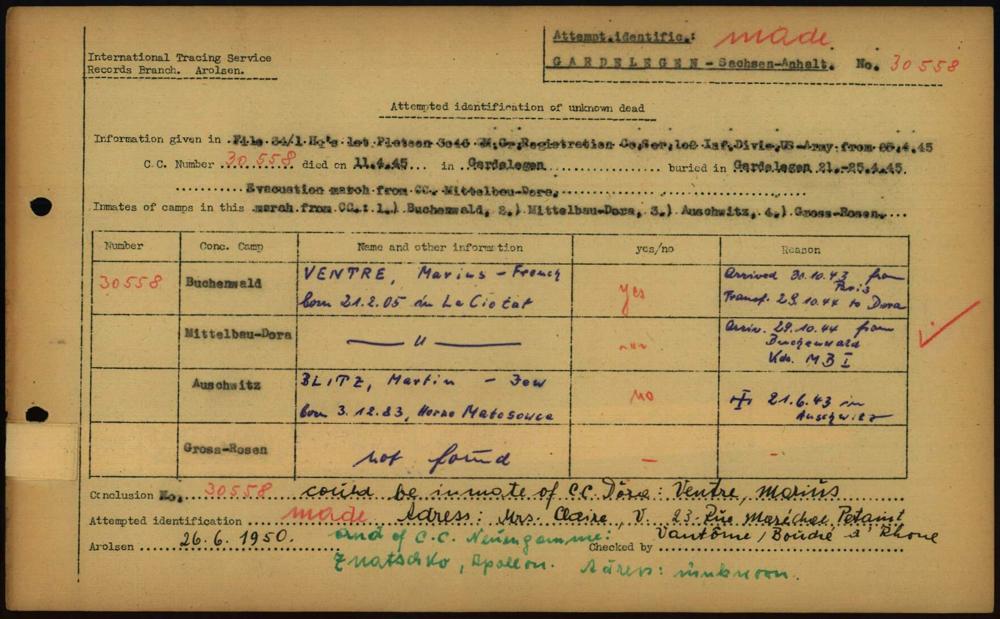 International Tracing Service
Records Branch. Arolsen.
Attempt.identific.: made
GARDELEGEN - Sachsen-Anhalt. No. 30558
Attempted identification of unknown dead
Information given in File 84/1 Hq's 1st Platoon 3046 Gr.Registration Co. Inf.Divis. US-Army from 25.4.45
C.C. Number 30558 died on 11.4.45 in Gardelegen buried in Gardelegen 21.-25.4.45
Evacuation march from CC. Mittelbau-Dora.
Inmates of camps in this march from CC.: 1.) Buchenwald, 2.) Mittelbau-Dora, 3.) Auschwitz, 4.) Gross-Rosen.
Number Conc. Camp Name and other information yes/no Reason
30558 Buchenwald VENTRE, Marius - French yes Arrived 30.10.43 from Paris
born 21.2.05 in La Ciotat Transf. 29.10.44 to Dora
Mittelbau-Dora — " — — " — Arriv. 29.10.44 from
Buchenwald
Kdo. MB I
Auschwitz BLITZ, Martin - Jew no 21.6.43 in
born 3.12.83, Auschwitz
Gross-Rosen not found — —
Conclusion No. 30558 could be inmate of CC Dora: Ventre, Marius
Attempted identification made Adress: Mrs. Claire, V. 23 Rue Maréchal Petaint
Arolsen 26.6.1950. and of C.C. Neuengamme: Checked by Vantôme, Rhone
Znatschko, Apollon. Adress: unknoon.